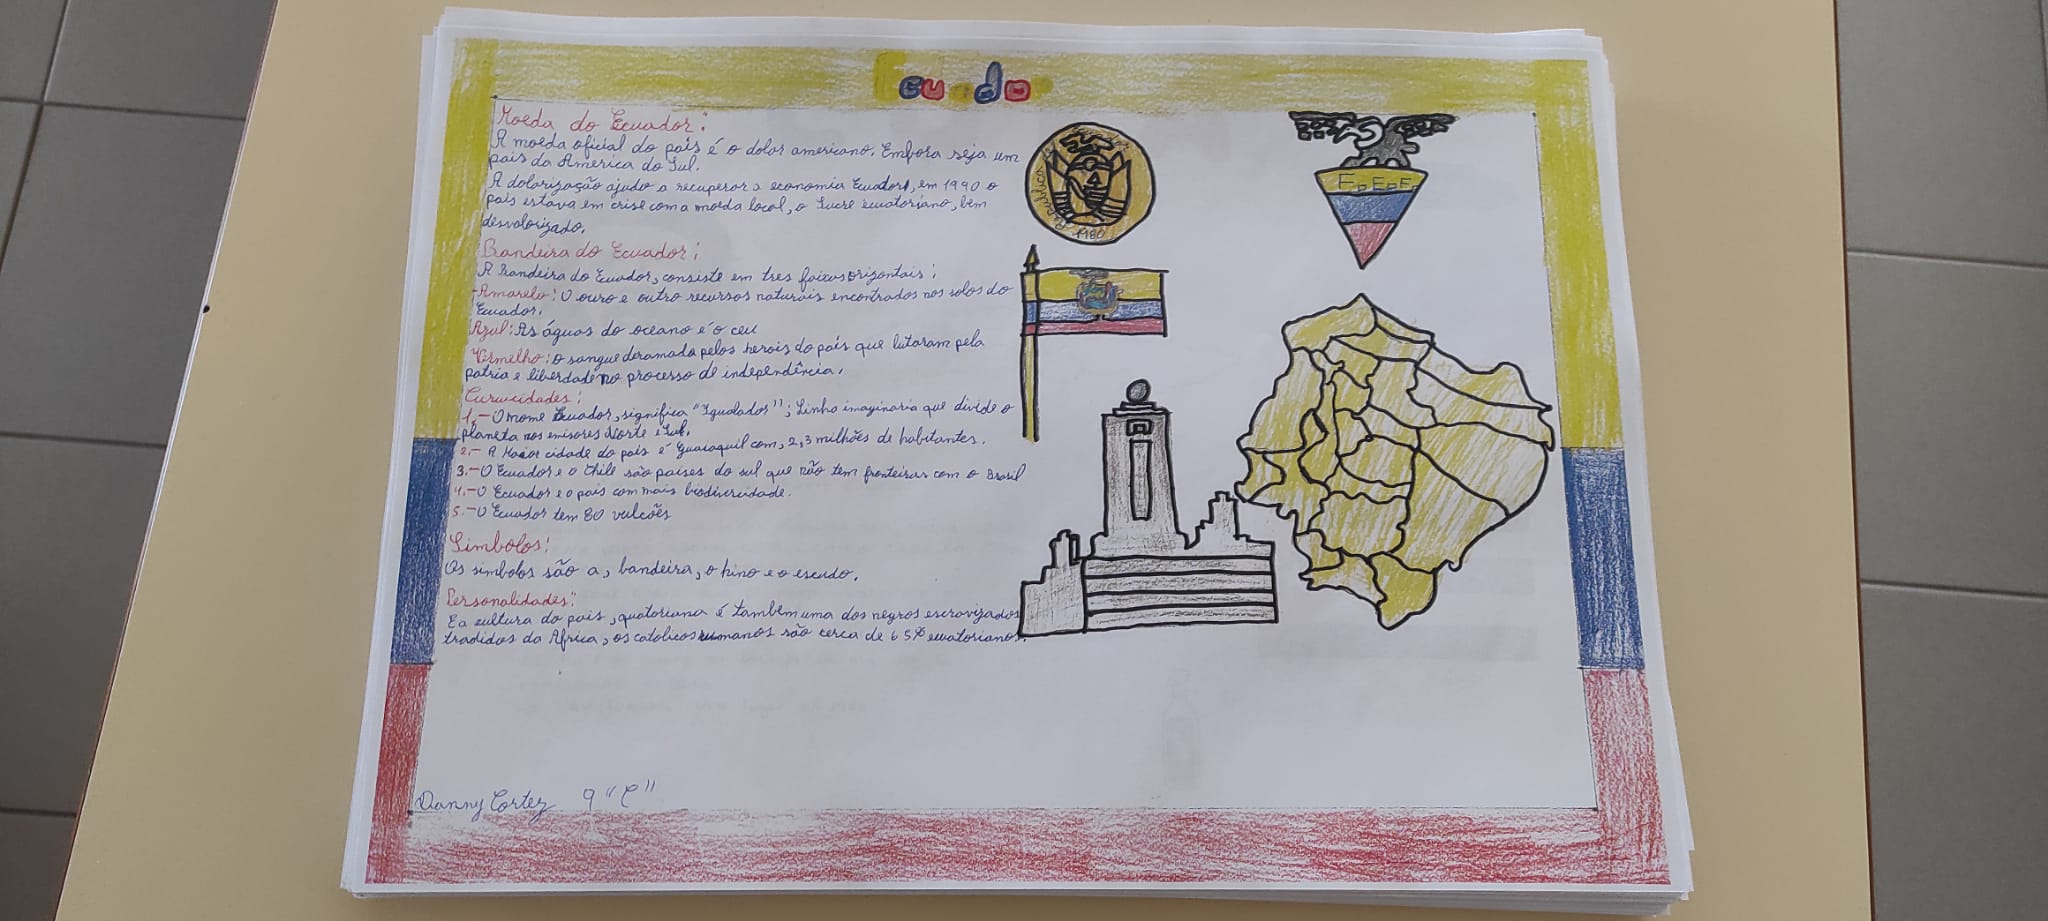 Ecuado
Moeda do Ecuador:
A moeda oficial do país é o dolar americano. Embora seja um
país da América do Sul.
A dolarização ajudo a recuperar a economia Ecuador, em 1990 o
país estava em crise com a moeda local, o Sucre ecuatoriano, bem
desvalorizado.
Bandeira do Ecuador;
A Bandeira do Ecuador, consiste em tres faixas orizontais;
-Amarelo: O ouro e outro recursos naturais encontrados nos solos do
Ecuador.
Azul: As águas do oceano e o ceu
Vermelho: o sangue deramada pelos herois do país que lutaram pela
patria e liberdade no processo de independência.
Curiucidades:
1.- O nome Ecuador, significa "Igualador"; Linha imaginaria que divide o
planeta nos emisores Norte e Sul.
2.- A Maior cidade do país é Guaiaquil com, 2,3 milhões de habitantes.
3.- O Ecuador e o Chile são países do sul que não tem fronteiras com o Brasil
4.- O Ecuador e o país com mais biodiversidade.
5.- O Ecuador tem 80 vulcões
Simbolos:
Os simbolos são a, bandeira, o hino e o escudo.
Personalidades:
Ea cultura do país, quatoriana é tambem uma dos negros escravizados
tradidos da Africa, os catolicos rumanos são cerca de 65% ecuatorianos.
Danny Cortez 9 "C"
República do Ecuador
1980
F.E.F.